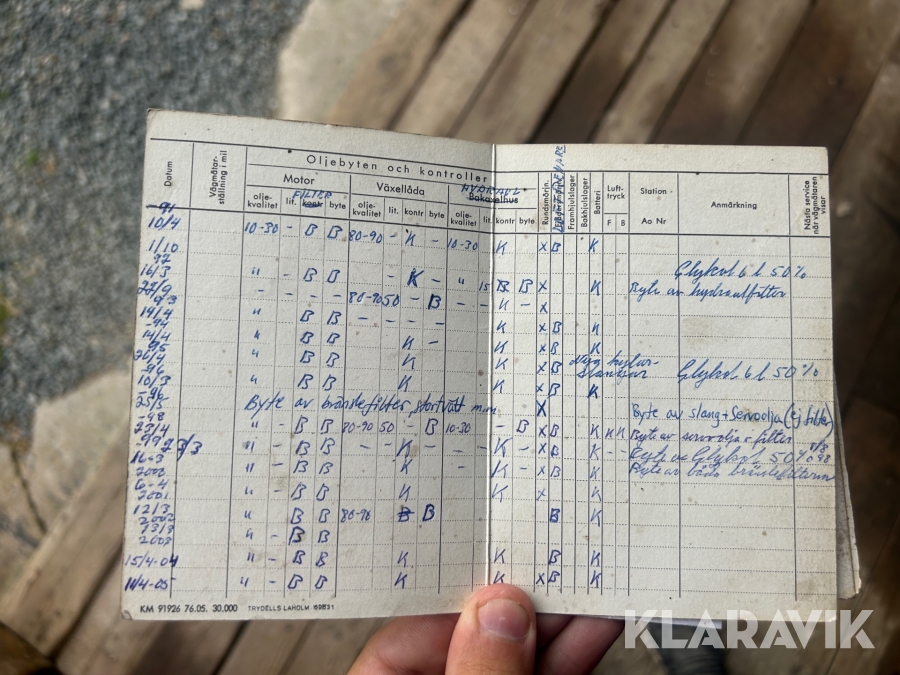 Oljebyten och kontroller
Datum
Vägmätar-
ställning i mil
Motor
Växellåda
HYDRAUL
Bakaxelhus
olje-
kvalitet
lit.
FILTER
kontr
byte
olje-
kvalitet
lit.
kontr
byte
olje-
kvalitet
lit.
kontr
byte
Rundsmörjn.
Framhjulslager
Bakhjulslager
Batteri
Luft-
tryck
F
B
Station
Ao Nr
Anmärkning
Nästa service
när vägmätaren
visar
-91
10/4 10-30 - B B 80-90 - K - 10-30 K X B K
1/10
92 Glykol 6 l 50%
16/3 " - B B - K - " 15 B B X K Byte av hydraulfilter
- - - - 80-90 50 - B - K - X
14/4 " B B - - - - X B K
-94
14/4 " B B K - K X B K
95
26/4 " B B K K X B Nya hydr-
slangar Glykol 6 l 50%
-96
10/3 " B B K K X B K
25/5 Byte av bränslefilter, startvätt m.m. X Byte av slang + Servoolja (ej filter)
-98
23/4 " - B B 80-90 50 - B 10-30 - B X B K K K Byte av servoolja + filter
-99 23/3 " - B B - - K - - K - X B K - - Byte av Glykol 50% 9/8 98
16-3 " - B B K - K - X B K Byte av båda bränslefiltren
2000
6-4 " - B B K K X K
2001
12/3 " B B 80-90 B B B K
2002
13/3 " - B B
2003
15/4-04 " - B B K K B K
14/4-05 " - B B K K X B K
KM 91926 76.05. 30.000 TRYDELLS LAHOLM 69831
KLARAVIK